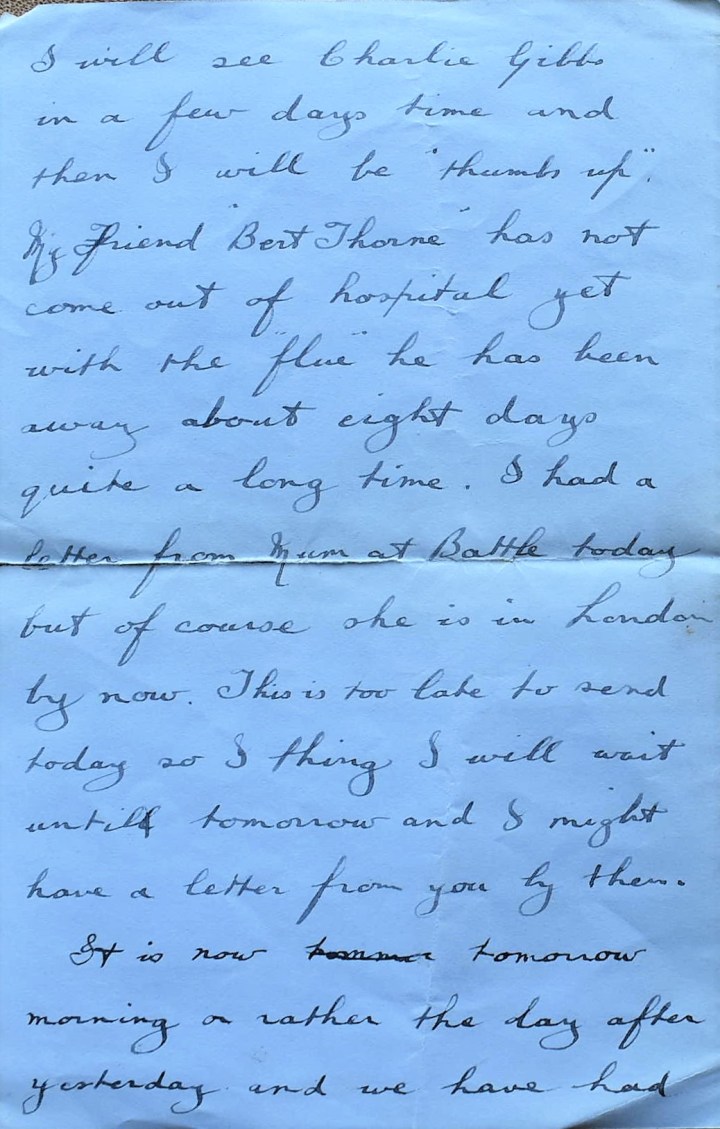 I will see Charlie Gibbs
in a few days time and
then I will be "thumbs up".
My friend "Bert Thorne" has not
come out of hospital yet
with the "flue" he has been
away about eight days
quite a long time. I had a
letter from Mum at Battle today
but of course she is in London
by now. This is too late to send
today so I thing I will wait
untill tomorrow and I might
have a letter from you by then.
It is now tomorrow
morning or rather the day after
yesterday and we have had